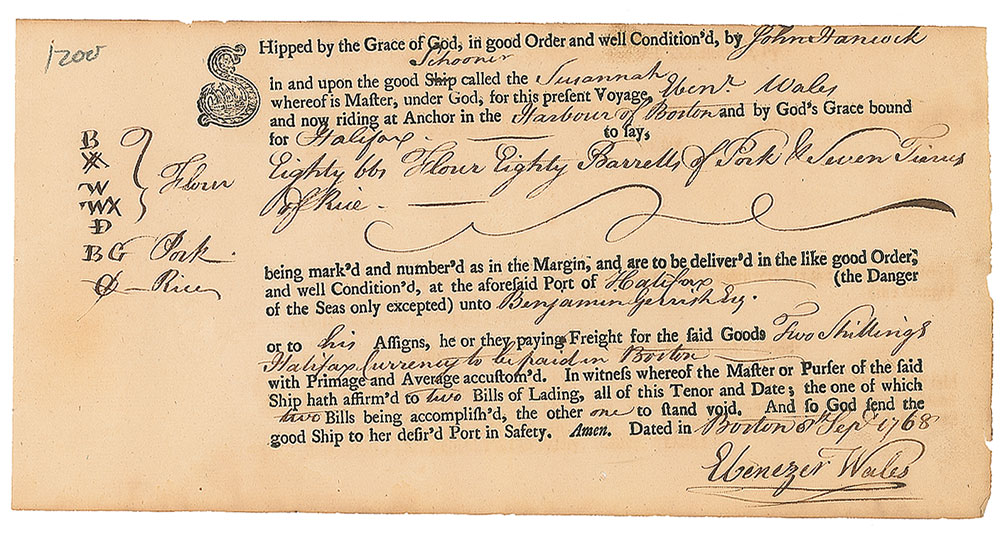 1200
SHipped by the Grace of God, in good Order and well Condition'd, by John Hancock
Schooner
in and upon the good Ship called the Susannah
whereof is Master, under God, for this present Voyage, Ebenr. Wales
and now riding at Anchor in the Harbour of Boston and by God's Grace bound
for Halifax. to say,
Eighty bbs Flour Eighty Barrells of Pork & Seven Tierces
of Rice
B
W
WX
D
Flour
BG Pork.
Rice
being mark'd and number'd as in the Margin, and are to be deliver'd in the like good Order,
and well Condition'd, at the aforesaid Port of Halifax (the Danger
of the Seas only excepted) unto Benjamin Gerrish Esq.
or to his Assigns, he or they paying Freight for the said Goods Two Shillings
Halifax Currency to be paid in Boston
with Primage and Average accustom'd. In witness whereof the Master or Purser of the said
Ship hath affirm'd to two Bills of Lading, all of this Tenor and Date; the one of which
two Bills being accomplish'd, the other one to stand void. And so God send the
good Ship to her desir'd Port in Safety. Amen. Dated in Boston Sepr. 1768
Ebenezer Wales